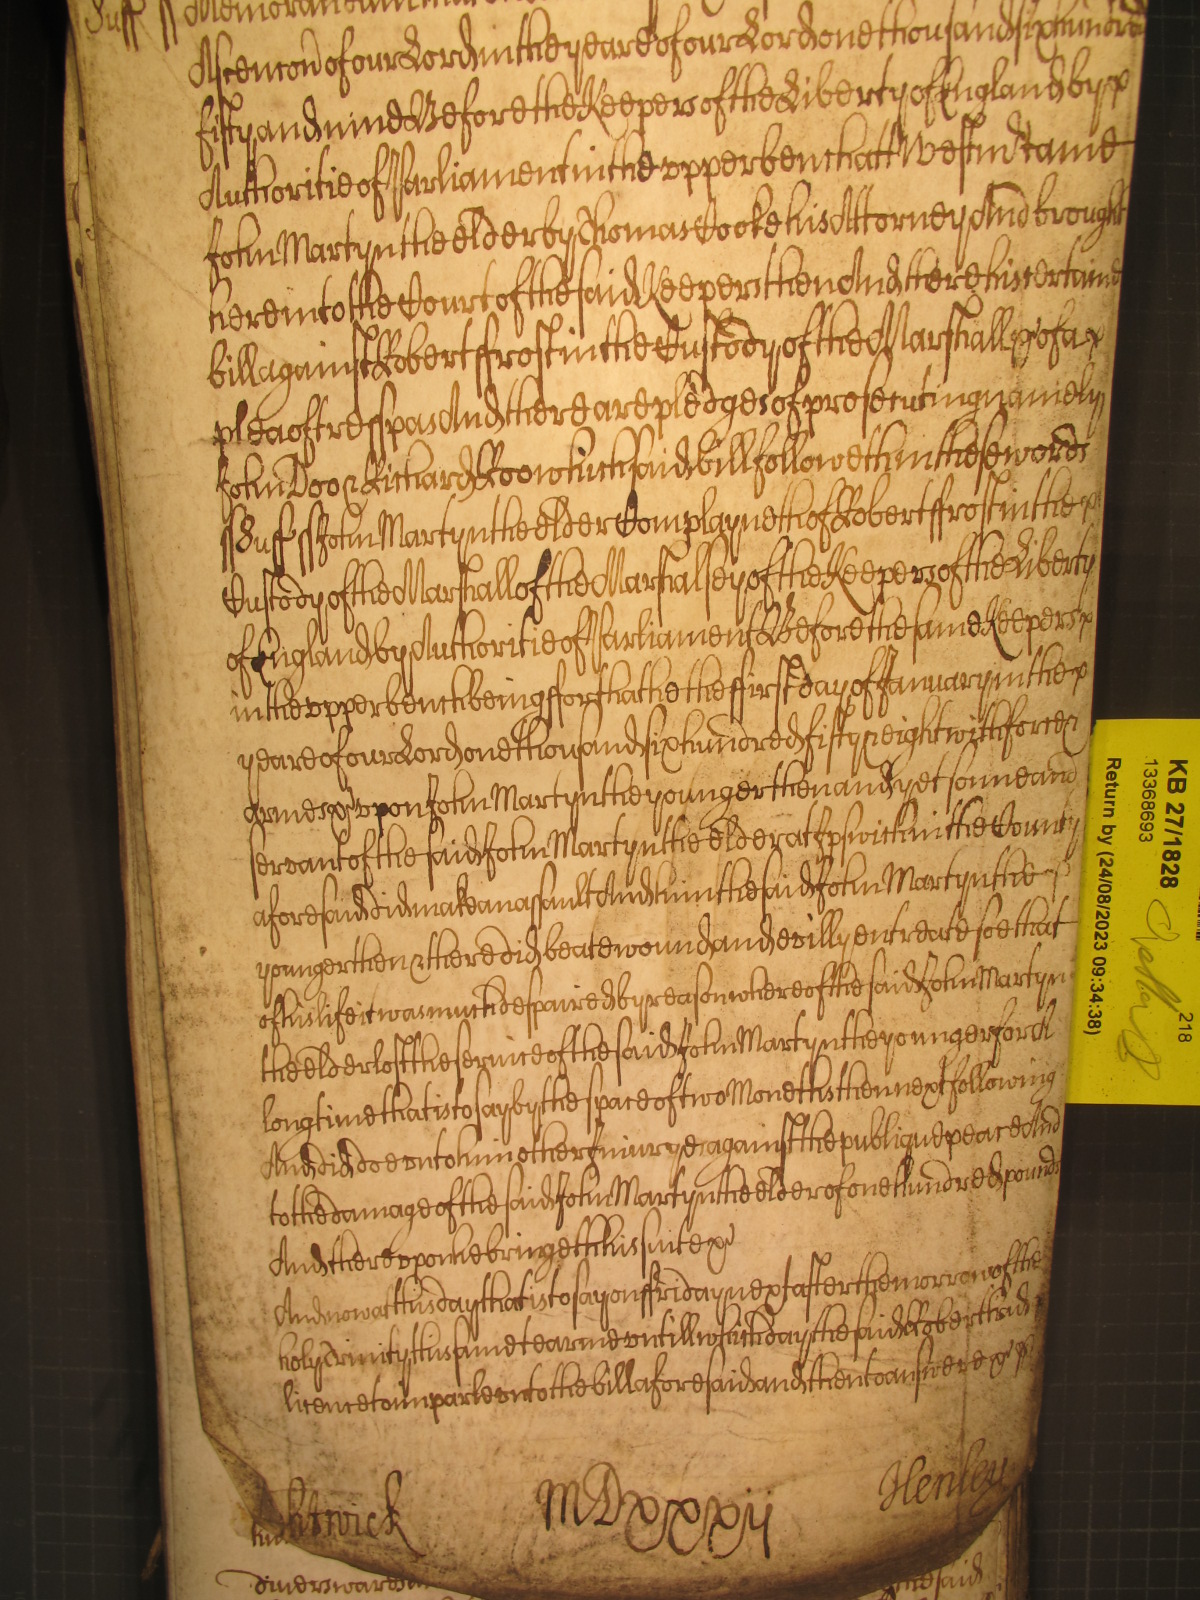 Suff ss Memorandum that
Ascencon of our Lord in the yeare of our Lord one thousand six hundred
fifty and nine Before the Keepers of the Liberty of England by
Authoritie of Parliament in the vpper bench att Westm came
John Martyn the elder by Thomas Cooke his Attorney And brought
here into the Court of the said Keepers then And there his certaine
bill against Robert ffrost in the Custody of the Marshall &c of a
plea of trespas And there are pledges of prosecuting namely
John Doo & Richard Roo which said bill followeth in these words
ss Suff ss John Martyn the elder Complayneth of Robert ffrost in the
Custody of the Marshall of the Marshalsey of the Keepers of the Liberty
of England by Authoritie of Parliament Before the same Keepers
in the vpper bench being ffor that he the ffirst day of January in the
yeare of our Lord one thousand six hundred fifty & eight with force &
armes &c vpon John Martyn the younger then and yet sonne and
servant of the said John Martyn the elder at Ipswich in the County
aforesaid did make an assault And him the said John Martyn the
younger then & there did beate wound and evilly entreate soe that
of his life it was much despaired by reason whereof the said John Martyn
the elder lost the service of the said John Martyn the younger for a
long time that is to say by the space of two Moneths then next following
And did doe vnto him other Iniuryes against the publique peace And
to the damage of the said John Martyn the elder of one hundred pounds
And therevpon he bringeth his suite &c
And now at this day that is to say on ffriday next after the morrow of the
holy Trinity this same tearme vntill which day the said Robert had
licence to imparle vnto the bill aforesaid and then to answere &c
Chitwick MDxxxij Henley
divers wares
said
KB 27/1828
13368693
218
Return by (24/08/2023 09:34:38)